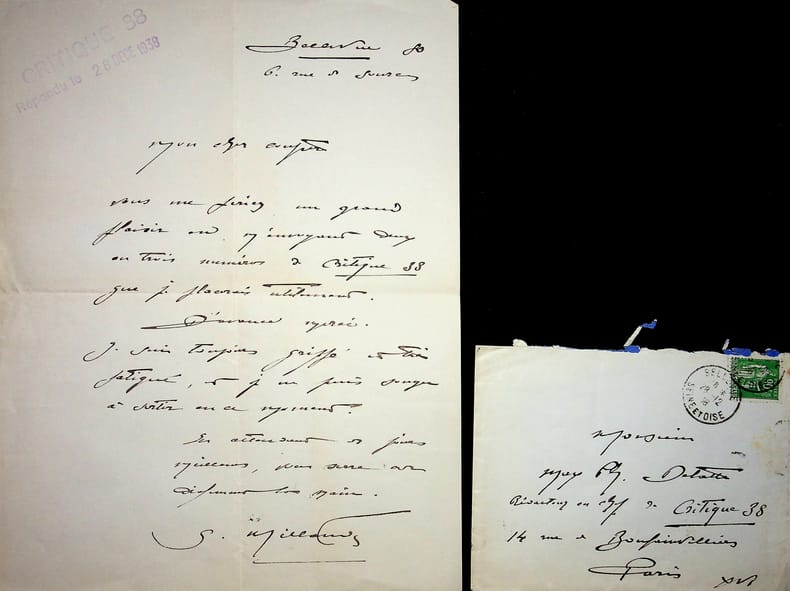 CRITIQUE 38
Répondu le 28 DCE 1938
Bellevue
6. rue de
Mon cher confrère
vous me feriez un grand
plaisir en m'envoyant deux
ou trois numéros de Critique 38
que je placerais utilement.
D'avance merci.
Je suis toujours grippé et très
fatigué, et je ne puis songer
à sortir en ce moment.
En attendant des jours
meilleurs, vous serre
les mains.
G. Millandy
BELLEVUE
28 12
SEINE ET OISE
Monsieur
Max Ph. Delatte
Rédacteur en chef de Critique 38
14 rue de Boulainvilliers
Paris XVI